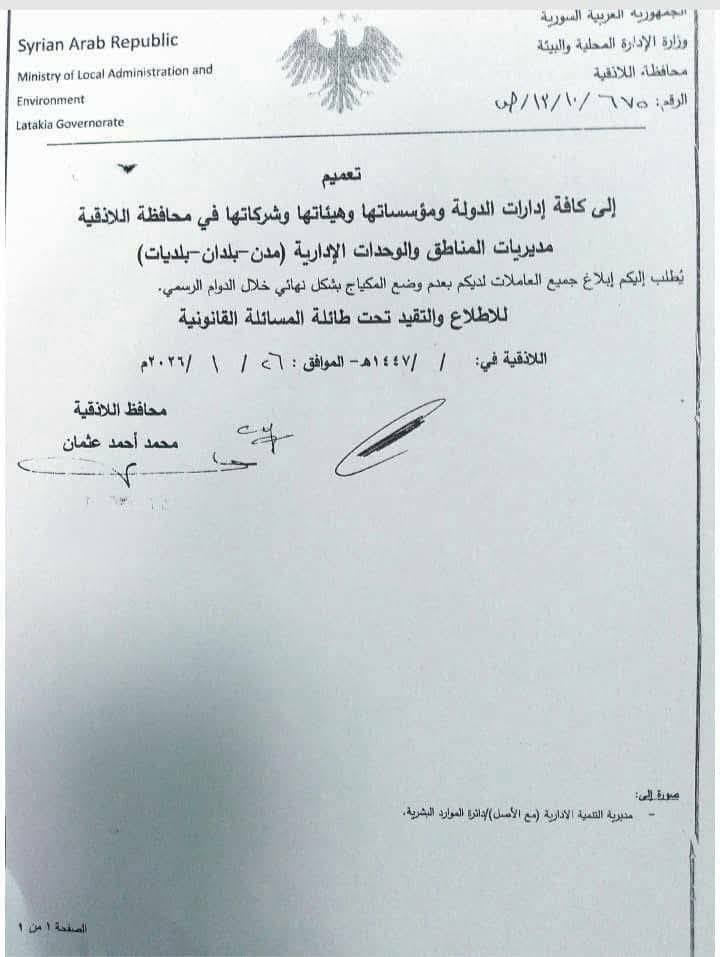 Syrian Arab Republic
Ministry of Local Administration and
Environment
Latakia Governorate
الجمهورية العربية السورية
وزارة الإدارة المحلية والبيئة
محافظة اللاذقية
الرقم: ٦٧٥ /١٠/١٢/ص
تعميم
إلى كافة إدارات الدولة ومؤسساتها وهيئاتها وشركاتها في محافظة اللاذقية
مديريات المناطق والوحدات الإدارية (مدن-بلدان-بلديات)
يُطلب إليكم إبلاغ جميع العاملات لديكم بعدم وضع المكياج بشكل نهائي خلال الدوام الرسمي.
للاطلاع والتقيد تحت طائلة المسائلة القانونية
اللاذقية في: / /١٤٤٧هـ- الموافق : ٢٦ / ١ /٢٠٢٦م
محافظ اللاذقية
محمد أحمد عثمان
صورة إلى:
- مديرية التنمية الادارية (مع الأصل)/دائرة الموارد البشرية.
الصفحة ١ من ١